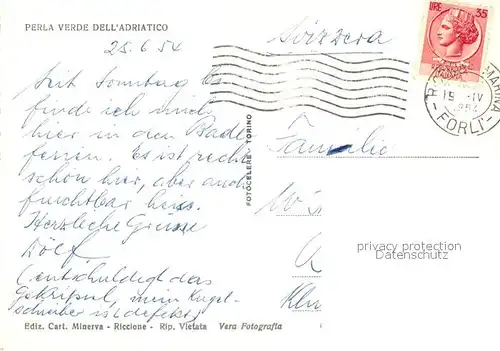 PERLA VERDE DELL'ADRIATICO
25.6.54
Svizzera
LIRE 35
FORLI'
Seit Sonntag
finde ich mich
hier in den Bade
ferien. Es ist recht
schön hier, aber auch
furchtbar heiss.
Herzliche Grüsse
Dölf
(entschuldigt das
Gekritzel, mein Kugel-
schreiber ist defekt)
Familie
FOTOCELERE - TORINO
privacy protection
Datenschutz
Ediz. Cart. Minerva - Riccione - Rip. Vietata Vera Fotografia